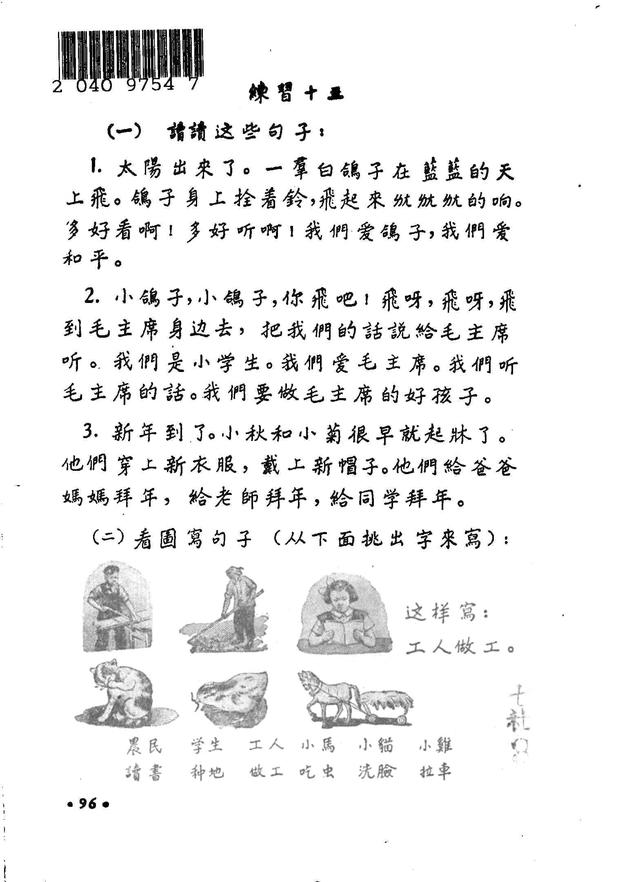 2 040 9754 7
練習十五
(一) 讀讀这些句子：
1. 太陽出來了。一羣白鴿子在藍藍的天
上飛。鴿子身上拴着鈴，飛起來㕸㕸㕸的响。
多好看啊！多好听啊！我們爱鴿子，我們爱
和平。
2. 小鴿子，小鴿子，你飛吧！飛呀，飛呀，飛
到毛主席身边去，把我們的話說給毛主席
听。我們是小学生。我們爱毛主席。我們听
毛主席的話。我們要做毛主席的好孩子。
3. 新年到了。小秋和小菊很早就起牀了。
他們穿上新衣服，戴上新帽子。他們給爸爸
媽媽拜年，給老師拜年，給同学拜年。
(二) 看圖寫句子 (从下面挑出字來寫)：
这样寫：
工人做工。
農民 学生 工人 小馬 小貓 小雞
讀書 种地 做工 吃虫 洗臉 拉車
• 96 •